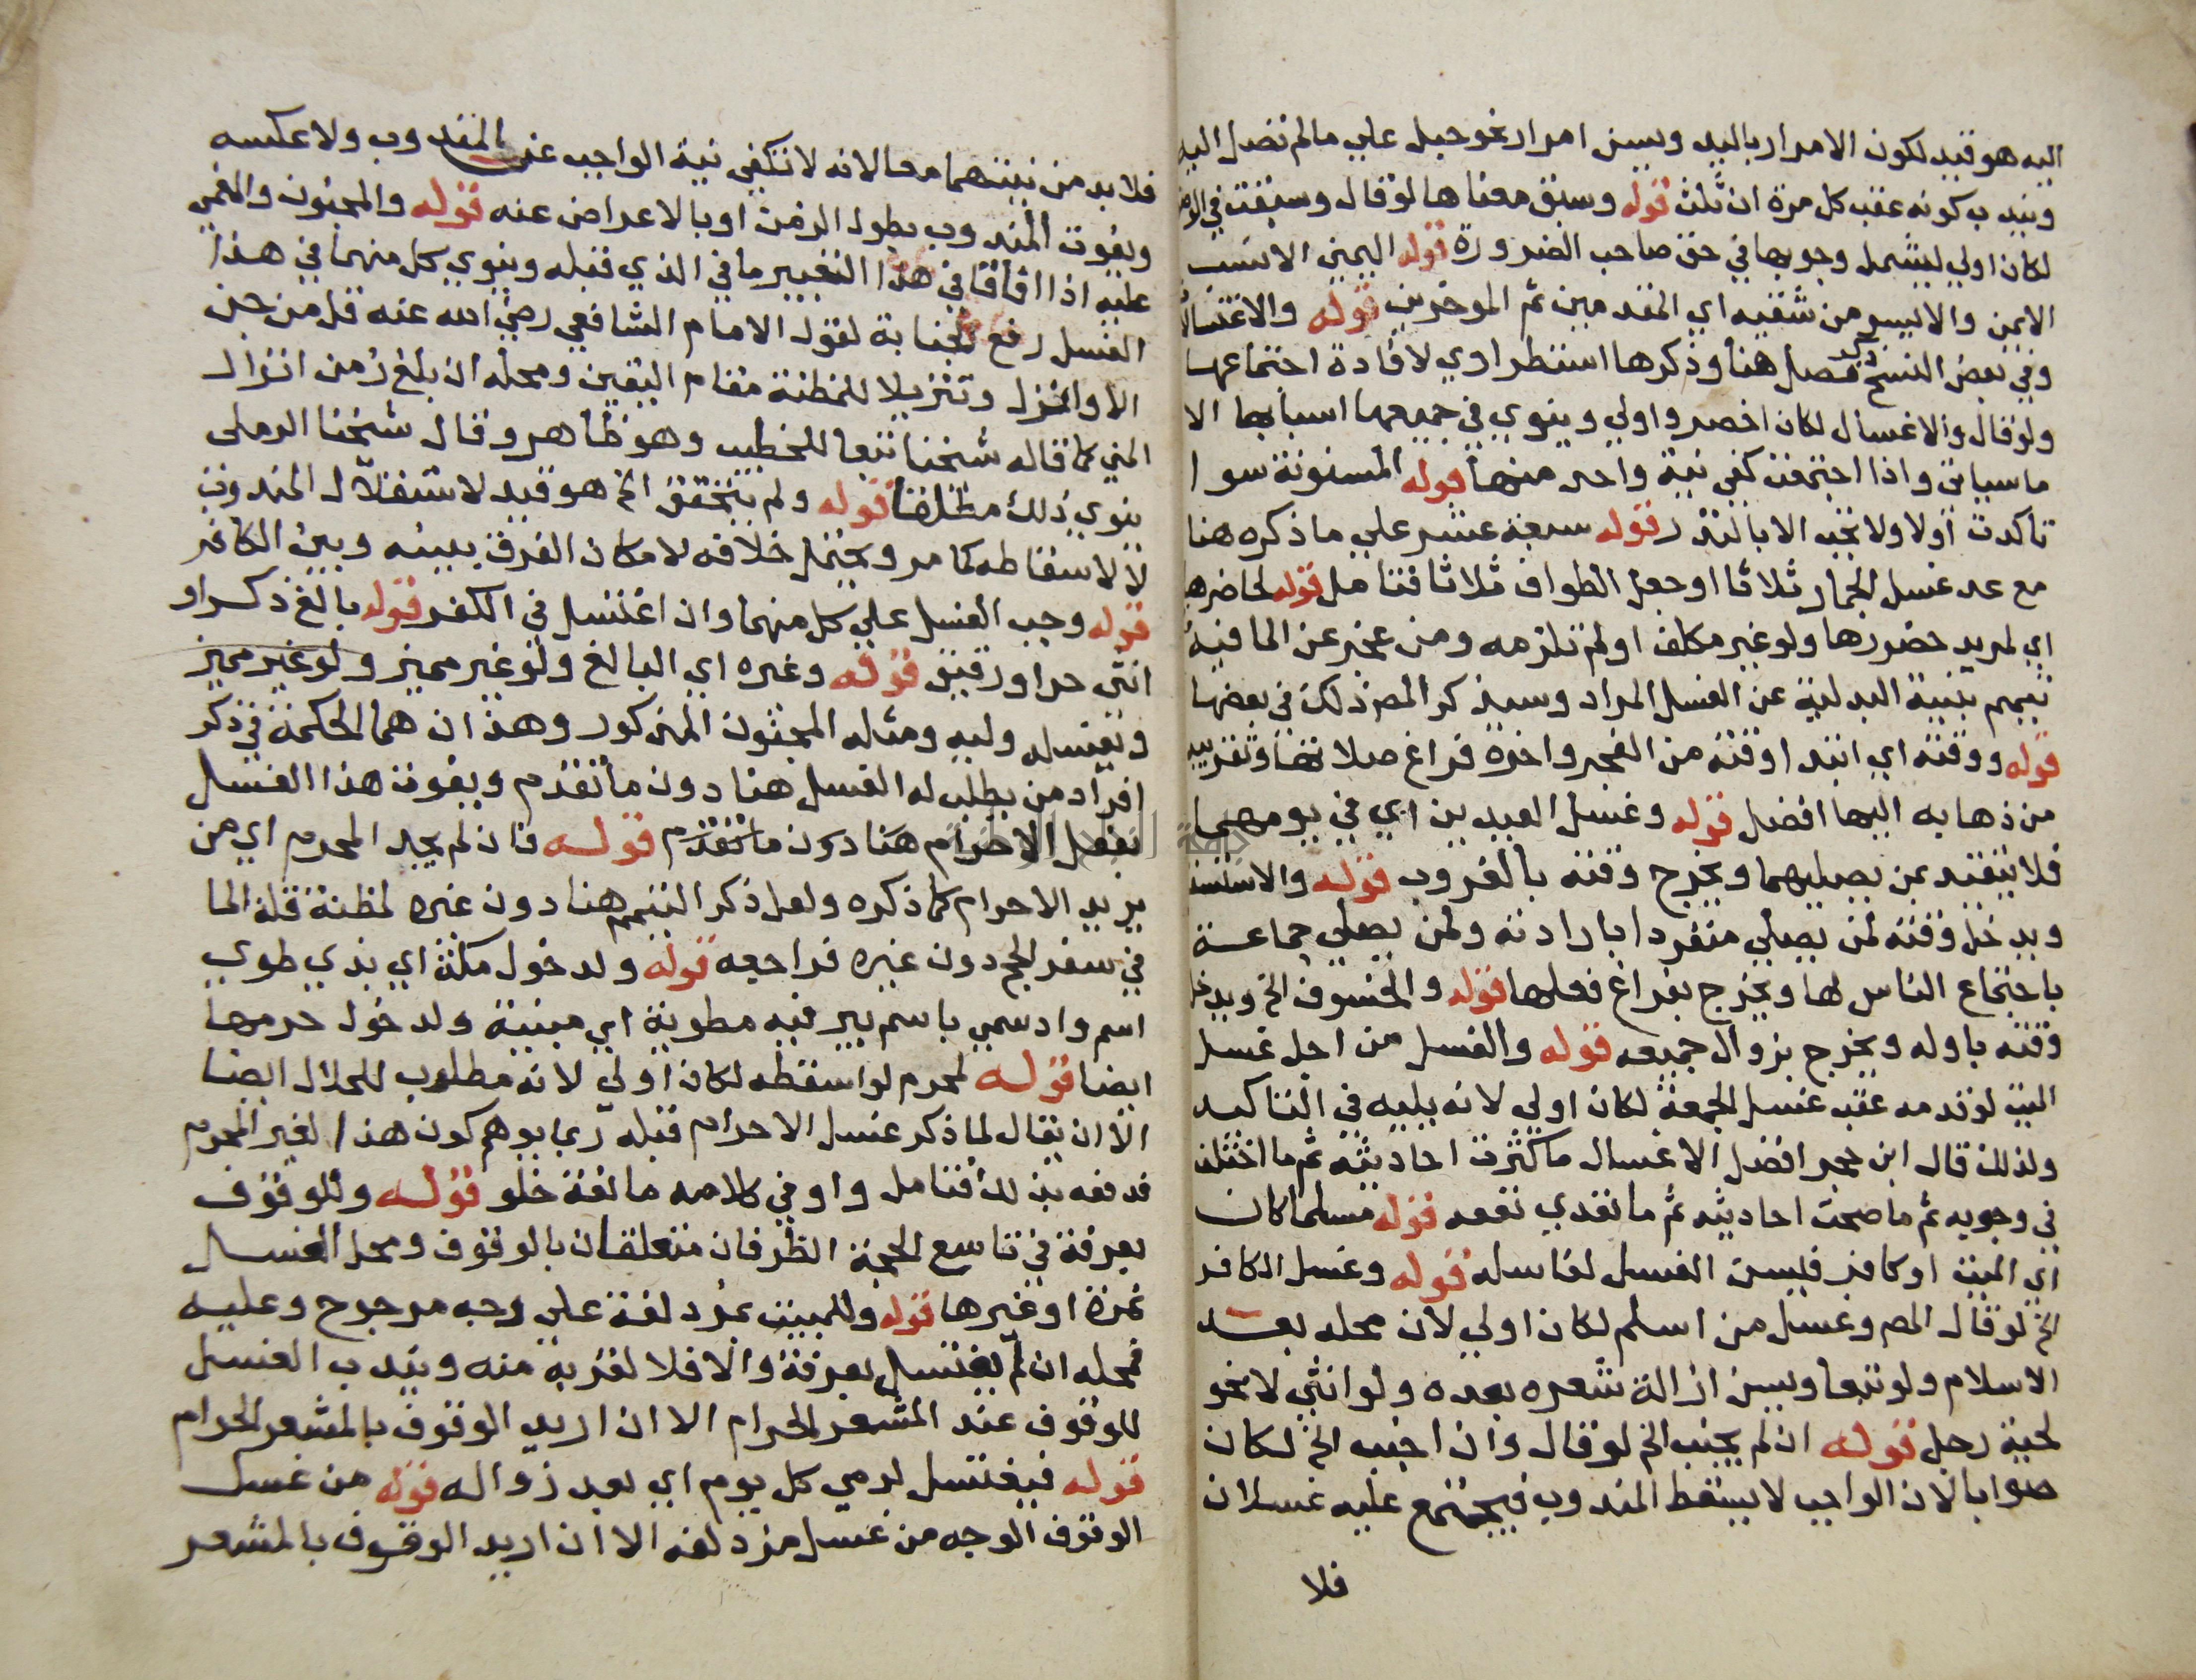 اليه هو قيد لكون الامرار باليد ويسن امرار نحو حبل علي ما لم تصل اليه
ويندب كونه عقب كل مرة ان ثلث قوله وسبق معناها لو قال وسبقت في
لكان اولي ليشمل وجوبها في حق صاحب الضرورة قوله اليمين الانسب
الايمن والايسر من شقيه اي المقدمين ثم المؤخرين قوله والاغتسالات
وفي بعض النسخ ذكر فصل هنا وذكرها استطرادي لافادة اجتماعها
ولو قال والاغسال لكان اخصر واولي وينوي في جميعها اسبابها الا
ما سياتي واذا اجتمعت كفي نية واحد منها قوله المسنونة سوا
تاكدت اولا ولا تجب الا بالنذر قوله سبعة عشر علي ما ذكره هنا
مع عد غسل الجمار ثلاثا او جعل الطواف ثلاثا فتامل قوله لحاضرها
اي لمريد حضورها ولو غير مكلف او لم تلزمه ومن عجز عن الما فيه
تيمم بنية البدلية عن الغسل المراد وسيذكر المص ذلك في بعضها
قوله ووقته اي ابتدا وقته من الفجر واخره فراغ صلاتها وتقريبه
من ذهابه اليها افضل قوله وغسل العيدين اي في يومهما
فلا يتقيد بمن يصليهما ويخرج وقته بالغروب قوله والاستسقا
ويدخل وقته لمن يصلي منفردا بارادته ولمن يصلي جماعة
باجتماع الناس لها ويخرج بفراغ فعلها قوله والخسوف الخ ويدخل
وقته باوله ويخرج بزوال جميعه قوله والغسل من اجل غسل
الميت لو قدمه عقب غسل الجمعة لكان اولي لانه يليه في التاكيد
ولذلك قال ابن حجر افضل الاغسال ما كثرت احاديثه ثم ما اختلف
في وجوبه ثم ما صحت احاديثه ثم ما تعدي نفعه قوله مسلما كان
اي الميت او كافر فليسن الغسل لغاسله قوله وغسل الكافر
الخ لو قال المص وغسل من اسلم لكان اولي لان محله بعد
الاسلام ولو تبعا ويسن ازالة شعره بعده ولو انثي لا نحو
لحية رجل قوله ان لم يجنب الخ لو قال وان اجنب الخ لكان
صوابا لان الواجب لا يسقط المندوب فيجتمع عليه غسلان
فلا
فلا بد من نيتهما معا لانه لا تكفي نية الواجب عن المندوب ولا عكسه
ويفوت المندوب بطول الزمن او بالاعراض عنه قوله والمجنون والمغمي
عليه اذا افاقا في هذا التغيير ما في الذي قبله وينوي كل منهما في هذا
الغسل رفع الجنابة لقول الامام الشافعي رضي الله عنه قل من جن
الا وانزل وتنزيلا للمظنة مقام اليقين ومحله ان بلغ زمن انزال
المني كما قاله شيخنا تبعا للخطيب وهو ظاهر وقال شيخنا الرملي
ينوي ذلك مطلقا قوله ولم يتحقق الخ هو قيد لاستقلال المندوب
لا لاسقاطه كما مر ويحتمل خلافه لامكان الفرق بينه وبين الكافر
قوله وجب الغسل علي كل منهما وان اغتسل في الكفر قوله بالغ ذكر او
انثي حر او رقيق قوله وغيره اي البالغ ولو غير مميز ولو غير مميز
ويغسله وليه ومثله المجنون المذكور وهذان هما الحكمة في ذكر
افراد من يطلب له الغسل هنا دون ما تقدم ويفوت هذا الغسل
بفعل الاحرام هنا دون ما تقدم قوله فان لم يجد المحرم اي من
يريد الاحرام كما ذكره ولعل ذكر التيمم هنا دون غيره لمظنة قلة الما
في سفر الحج دون غيره فراجعه قوله ولدخول مكة اي بذي طوي
اسم واد سمي باسم بير فيه مطوية اي مبنية ولدخول حرمها
ايضا قوله لمحرم لو اسقطه لكان اولي لانه مطلوب للحلال ايضا
الا ان يقال لما ذكر غسل الاحرام قبله ربما يوهم كون هذا لغير المحرم
فدفعه بذلك فتامل واو في كلامه مانعة خلو قوله وللوقوف
بعرفة في تاسع الحجة الظرفان متعلقان بالوقوف ومحل الغسل
نمرة او غيرها قوله وللمبيت بمزدلفة علي وجه مرجوح وعليه
فمحله ان لم يغتسل بعرفة والا فلا لقربه منه ويندب الغسل
للوقوف عند المشعر الحرام الا ان اريد الوقوف بالمشعر الحرام
قوله فيغتسل لرمي كل يوم اي بعد زواله قوله من غسل
الوقوف الوجه من غسل مزدلفه الا ان اريد الوقوف بالمشعر